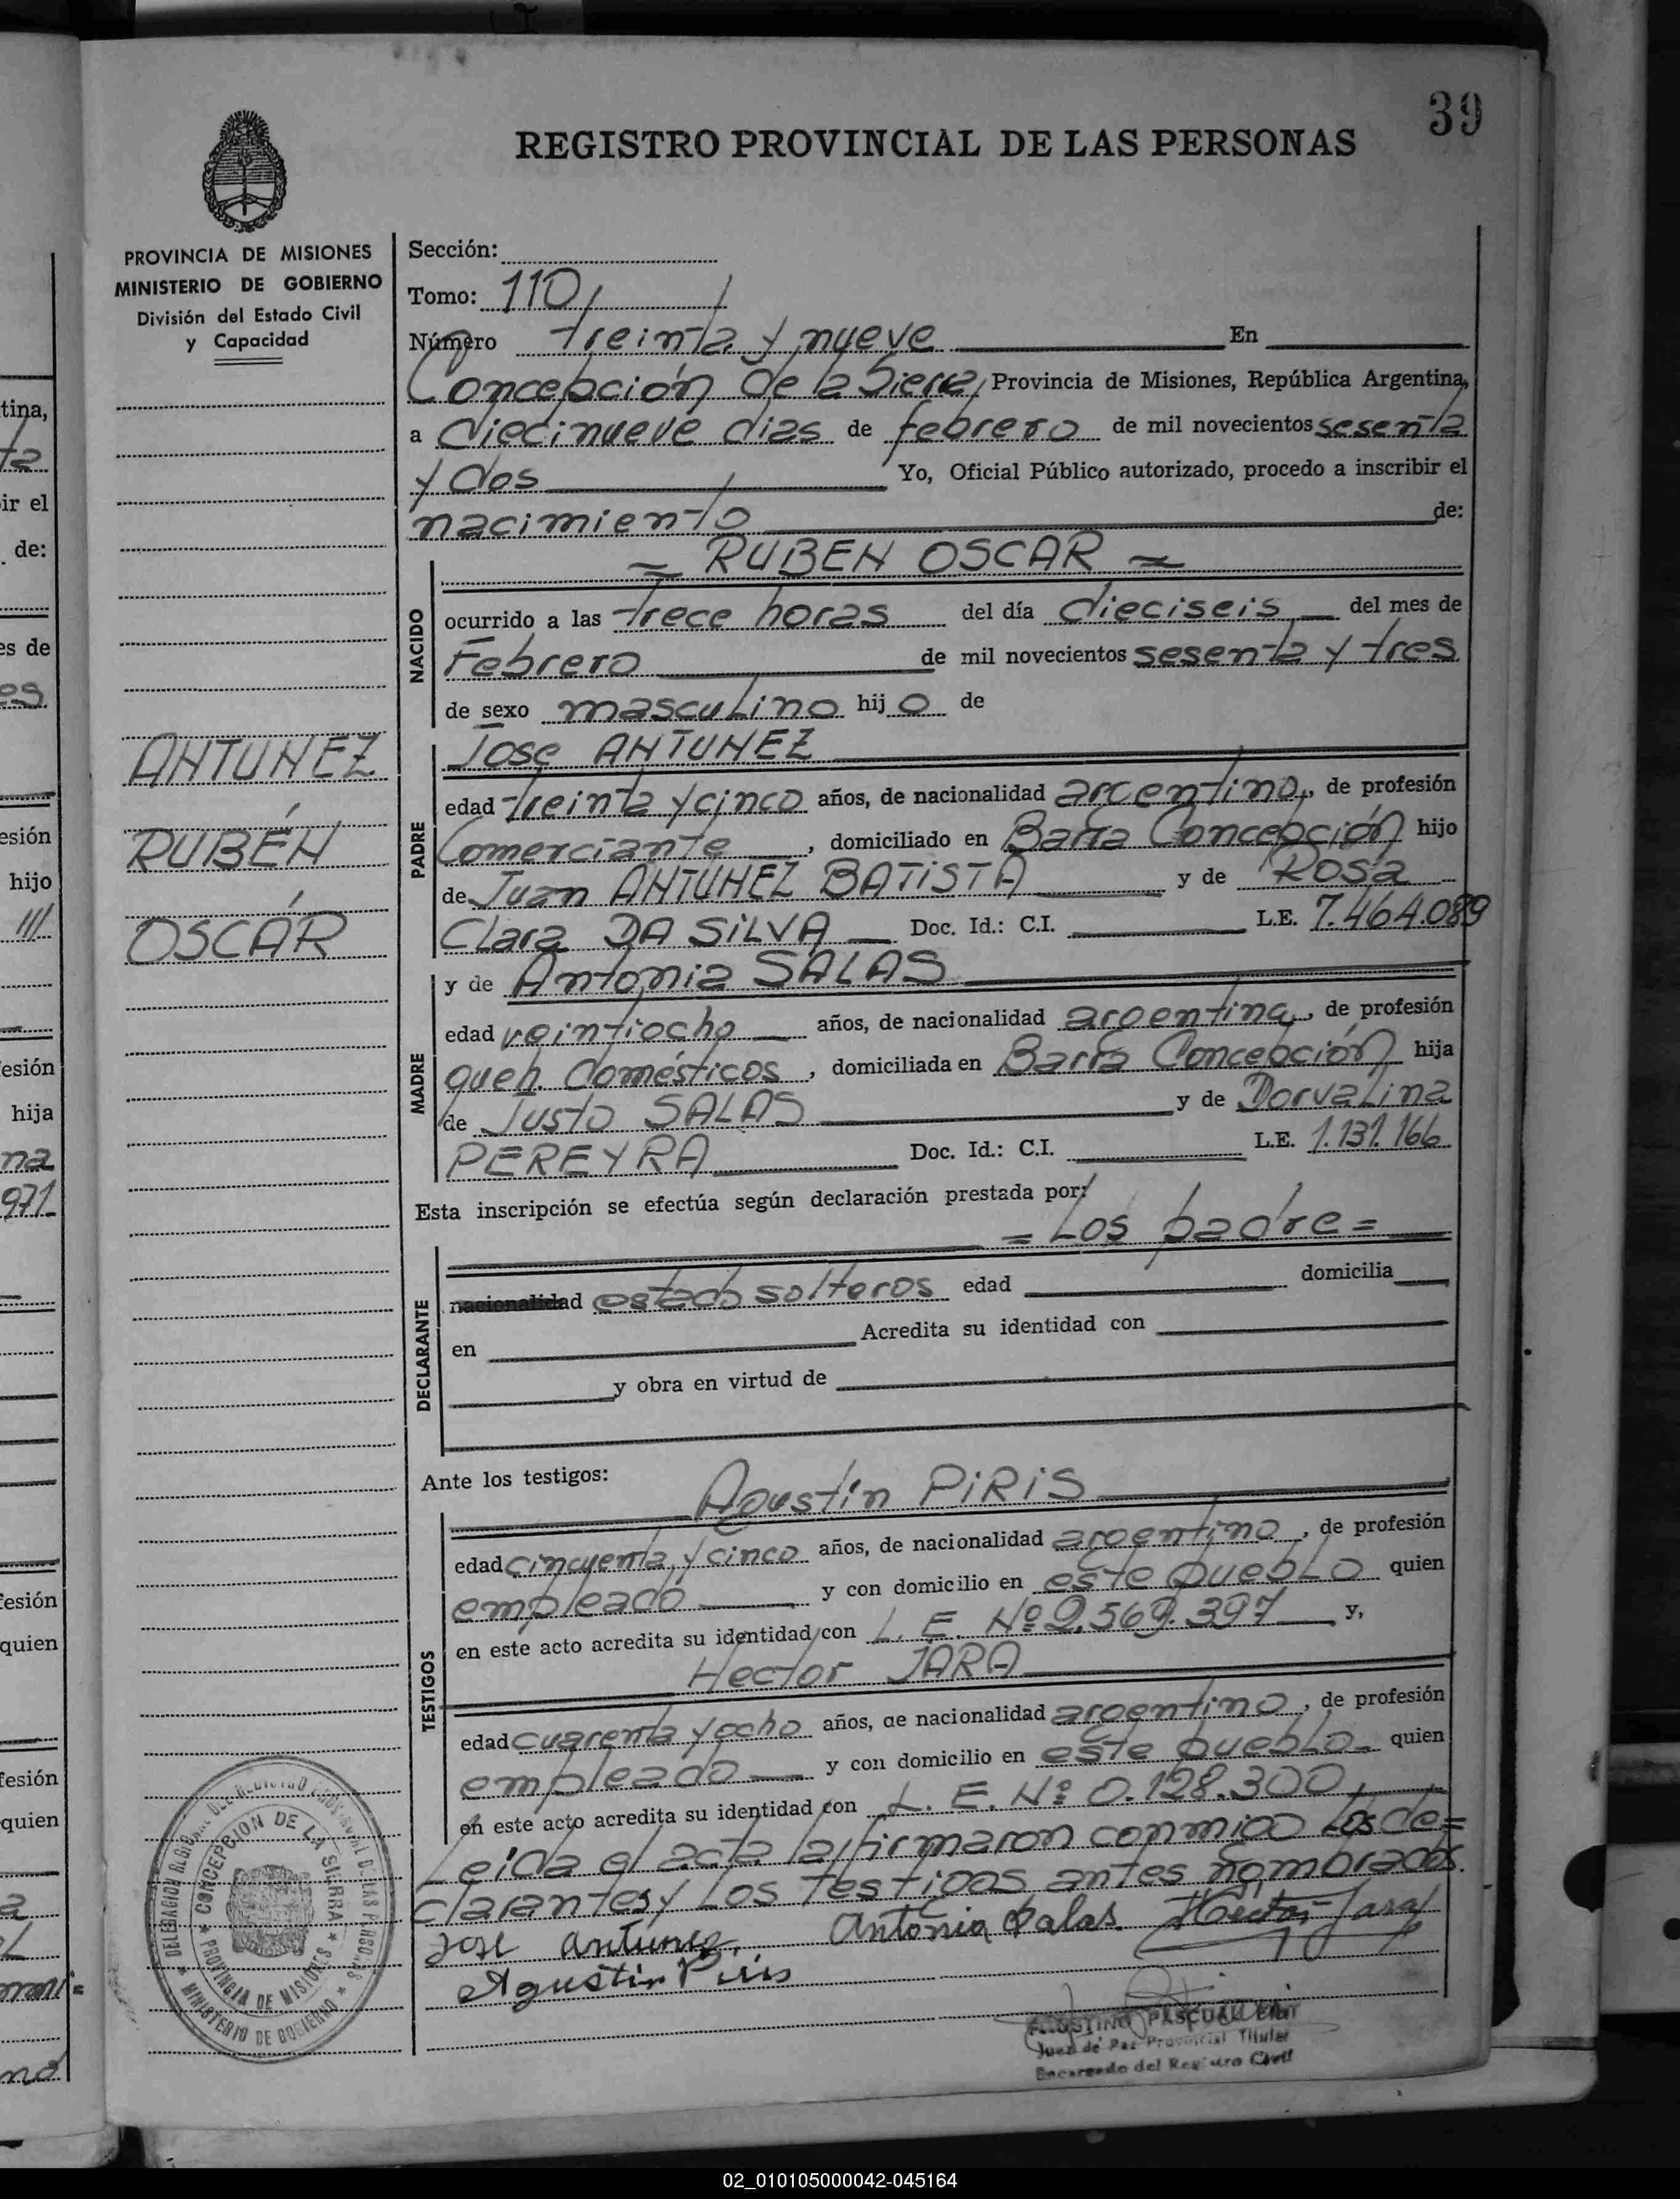 39
REGISTRO PROVINCIAL DE LAS PERSONAS
PROVINCIA DE MISIONES
MINISTERIO DE GOBIERNO
División del Estado Civil
y Capacidad
ANTUNEZ
RUBÉN
OSCÁR
Sección:
Tomo: 110,
Número treinta y nueve En
Concepción de la Siera, Provincia de Misiones, República Argentina,
a diecinueve dias de febrero de mil novecientos sesenta
y dos Yo, Oficial Público autorizado, procedo a inscribir el
nacimiento de:
= RUBEN OSCAR =
NACIDO
ocurrido a las trece horas del día dieciseis del mes de
Febrero de mil novecientos sesenta y tres
de sexo masculino hijo de
PADRE
Jose ANTUNEZ
edad treinta y cinco años, de nacionalidad argentino, de profesión
Comerciante, domiciliado en Barra Concepción hijo
de Juan ANTUNEZ BATISTA y de Rosa
Clara DA SILVA Doc. Id.: C.I. L.E. 7.464.089
MADRE
y de Antonia SALAS
edad veintiocho años, de nacionalidad argentina, de profesión
queh. Domésticos, domiciliada en Barra Concepción hija
de Justo SALAS y de Dorvalina
PEREYRA Doc. Id.: C.I. L.E. 1.131.166
Esta inscripción se efectúa según declaración prestada por:
= Los padre =
DECLARANTE
nacionalidad estado solteros edad domicilia
en Acredita su identidad con
y obra en virtud de
Ante los testigos:
Agustín PIRIS
TESTIGOS
edad cincuenta y cinco años, de nacionalidad argentino, de profesión
empleado y con domicilio en este pueblo quien
en este acto acredita su identidad con L. E. Nº 2.569.397 y,
Hector JARA
edad cuarenta y ocho años, de nacionalidad argentino, de profesión
empleado y con domicilio en este pueblo quien
en este acto acredita su identidad con L. E. Nº 0.128.300,
Leida el acta la firmaron conmigo los de=
clarantes y los testigos antes nombrados.
jose antunez. Antonia Salas. Hector Jara
Agustin Piris
PASCUAL
Juez de Paz Provincial Titular
Encargado del Registro Civil
DELEGACION REGIONAL DEL REGISTRO PROVINCIAL DE LAS PERSONAS
MINISTERIO DE GOBIERNO
CONCEPCION DE LA SIERRA
PROVINCIA DE MISIONES
tina,
ir el
de:
es de
es
esión
hijo
esión
hija
na
971
fesión
quien
fesión
quien
02_010105000042-045164